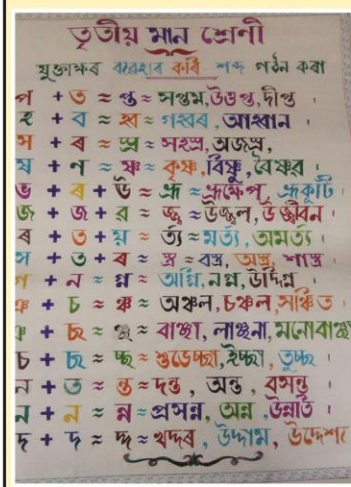 তৃতীয় মান শ্ৰেণী
যুক্তাক্ষৰ ব্যৱহাৰ কৰি শব্দ গঠন কৰা
প + ত ≈ প্ত ≈ সপ্তম, উত্তপ্ত, দীপ্ত ।
হ + ব ≈ হ্ব ≈ গহ্বৰ, আহ্বান
স + ৰ ≈ স্ৰ ≈ সহস্ৰ, অজস্ৰ,
ষ + ণ ≈ ষ্ণ ≈ কৃষ্ণ, বিষ্ণু, বৈষ্ণৱ ।
ভ + ৰ + ঊ ≈ ভ্ৰূ ≈ ভ্ৰূক্ষেপ, ভ্ৰূকুটি ।
জ + জ + ব ≈ জ্জ্ব ≈ উজ্জ্বল, উজ্জীৱন ।
ৰ + ত + য় ≈ ৰ্ত্য ≈ মৰ্ত্য, অমৰ্ত্য ।
স + ত + ৰ ≈ স্ত্ৰ ≈ বস্ত্ৰ, অস্ত্ৰ, শাস্ত্ৰ ।
গ + ন ≈ গ্ন ≈ অগ্নি, নগ্ন, উদ্বিগ্ন ।
ঞ + চ ≈ ঞ্চ ≈ অঞ্চল, চঞ্চল, সঞ্চিত ।
ঞ + ছ ≈ ঞ্ছ ≈ বাঞ্ছা, লাঞ্ছনা, মনোবাঞ্ছা
চ + ছ ≈ চ্ছ ≈ শুভেচ্ছা, ইচ্ছা, তুচ্ছ ।
ন + ত ≈ ন্ত ≈ দন্ত, অন্ত, বসন্ত ।
ন + ন ≈ ন্ন ≈ প্ৰসন্ন, অন্ন, উন্নতি ।
দ + দ ≈ দ্দ ≈ খদ্দৰ, উদ্দাম, উদ্দেশ্য